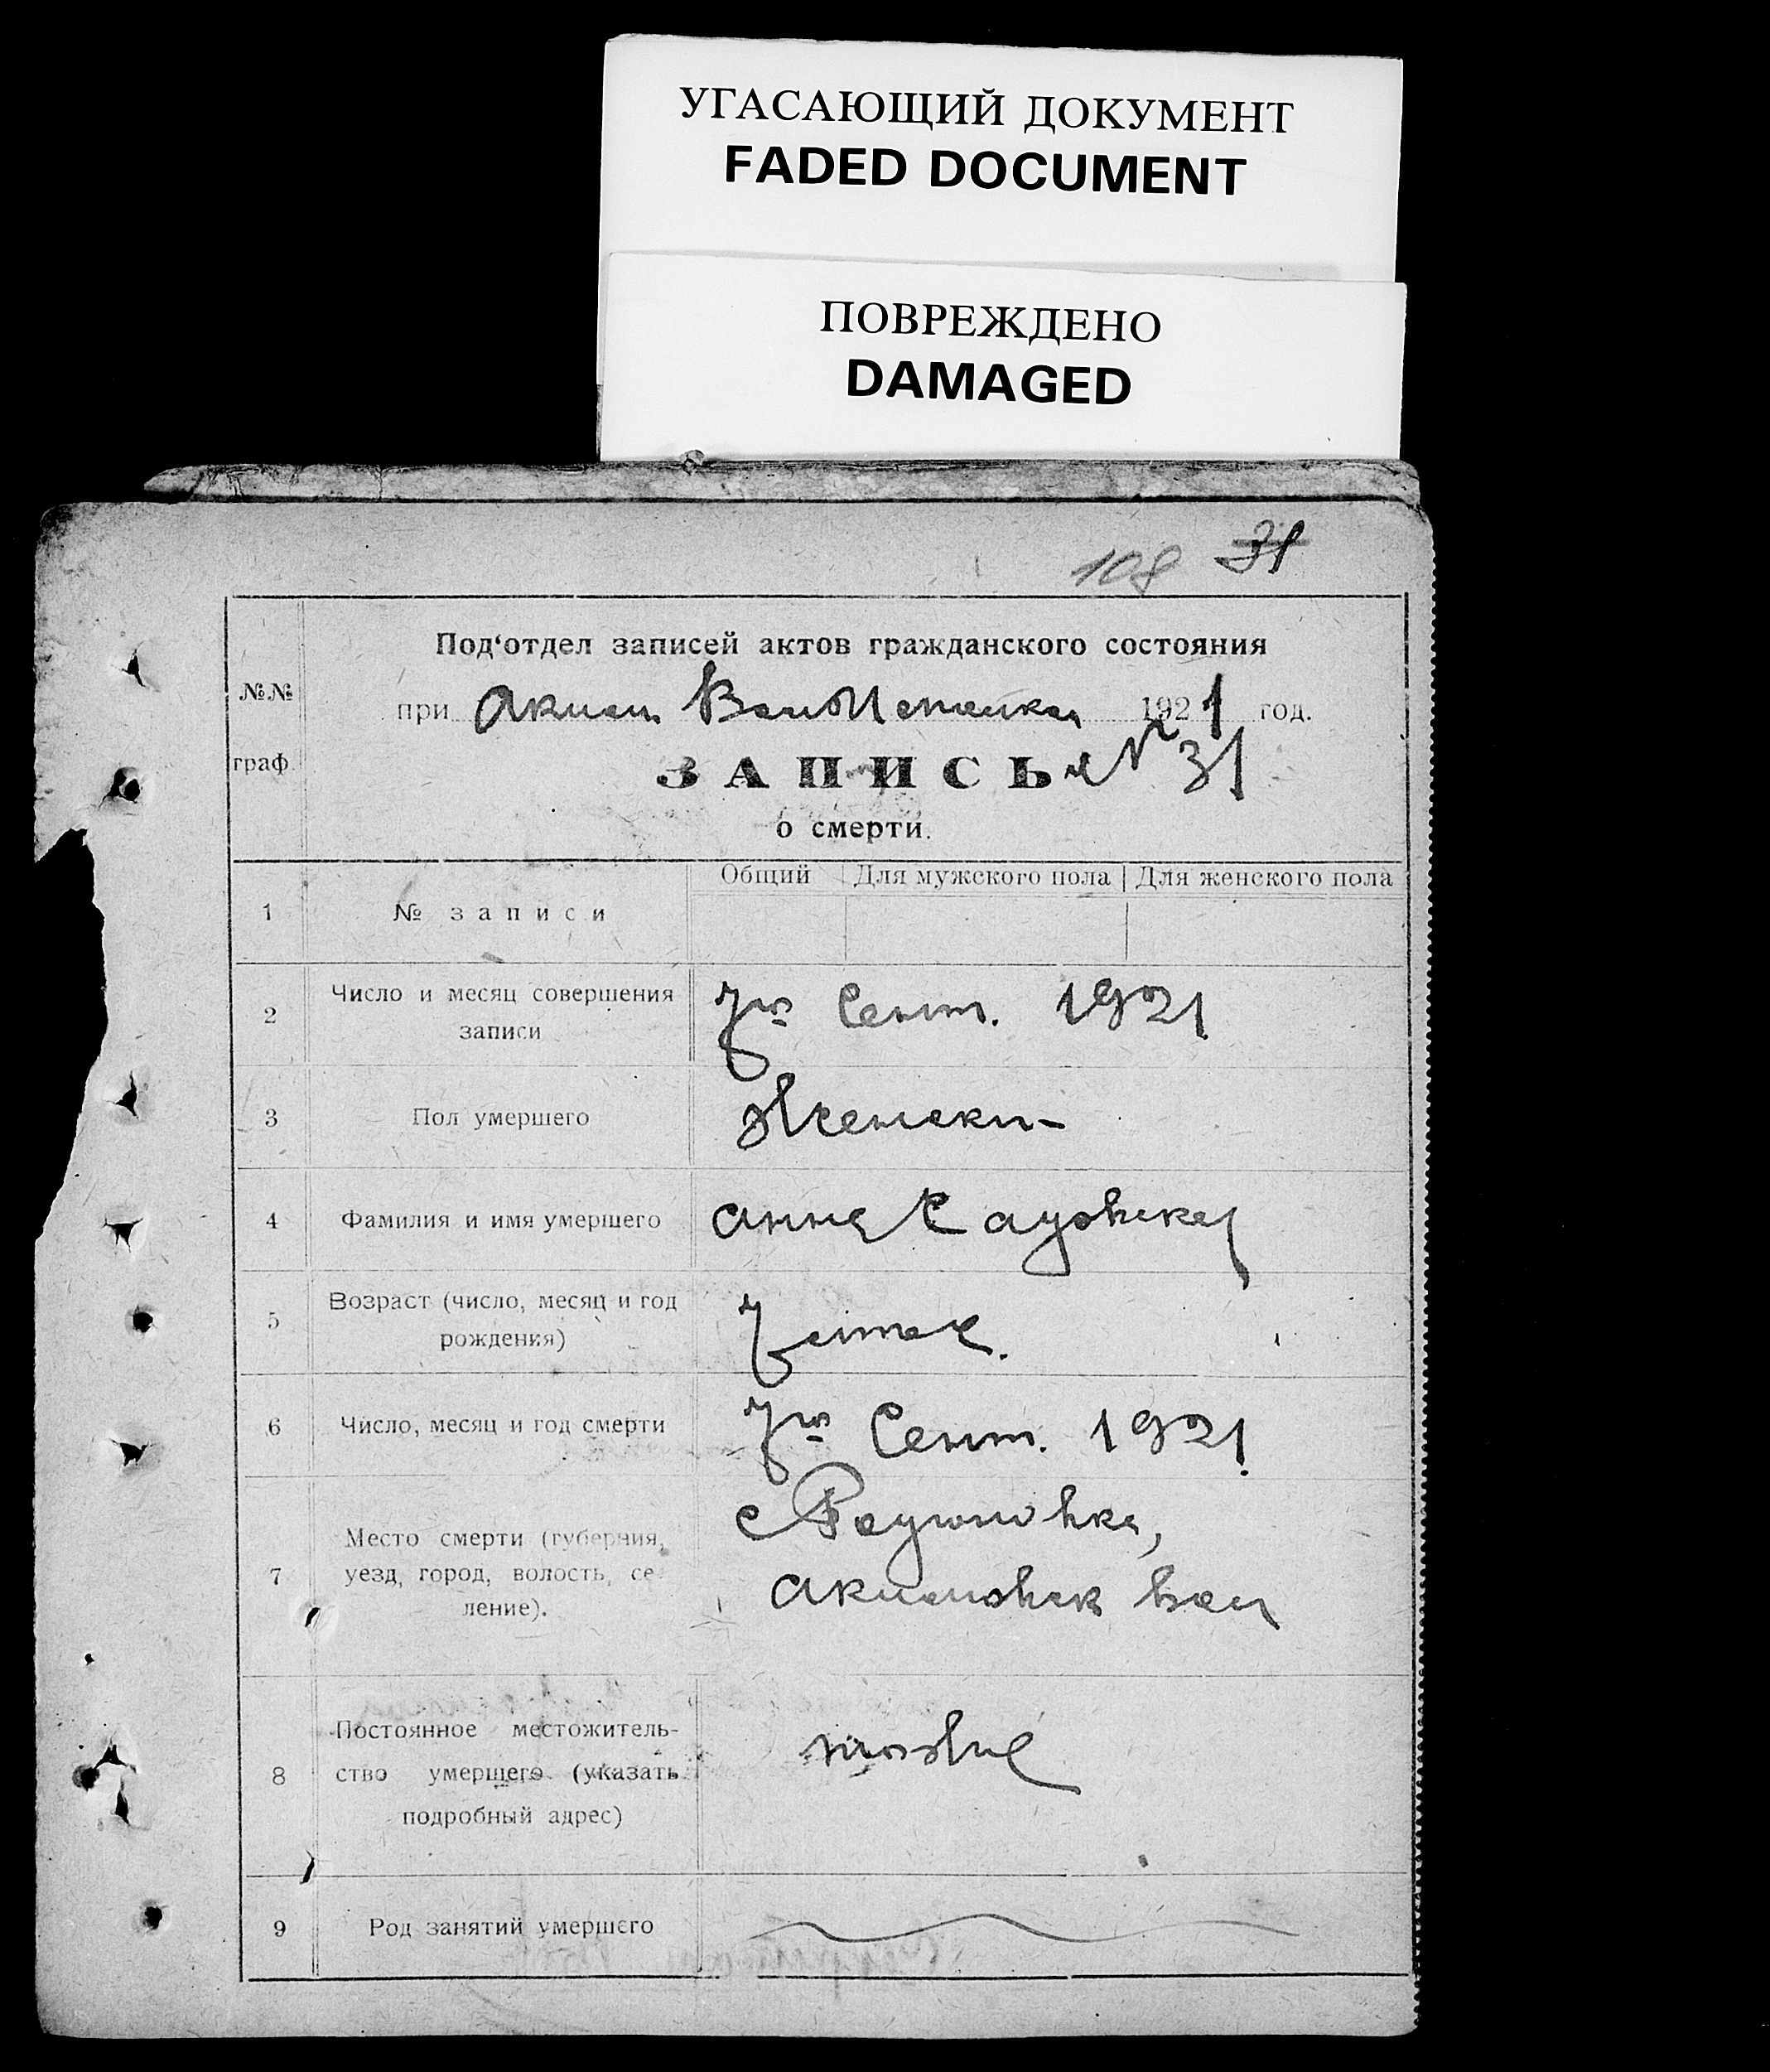 УГАСАЮЩИЙ ДОКУМЕНТ
FADED DOCUMENT
ПОВРЕЖДЕНО
DAMAGED
108 31
Под‘отдел записей актов гражданского состояния
№№ при Аким. 1921 год.
граф. ЗАПИСЬ № 31
о смерти.
Общий Для мужского пола Для женского пола
1 № записи
2 Число и месяц совершения
записи
7го Сент. 1921
3 Пол умершего Женски-
4 Фамилия и имя умершего Анна
5 Возраст (число, месяц и год
рождения)
7
6 Число, месяц и год смерти 7го Сент. 1921
7 Место смерти (губерния,
уезд, город, волость, се-
ление).
с
Акимовск вол
8 Постоянное местожитель-
ство умершего (указать
подробный адрес)
9 Род занятий умершего